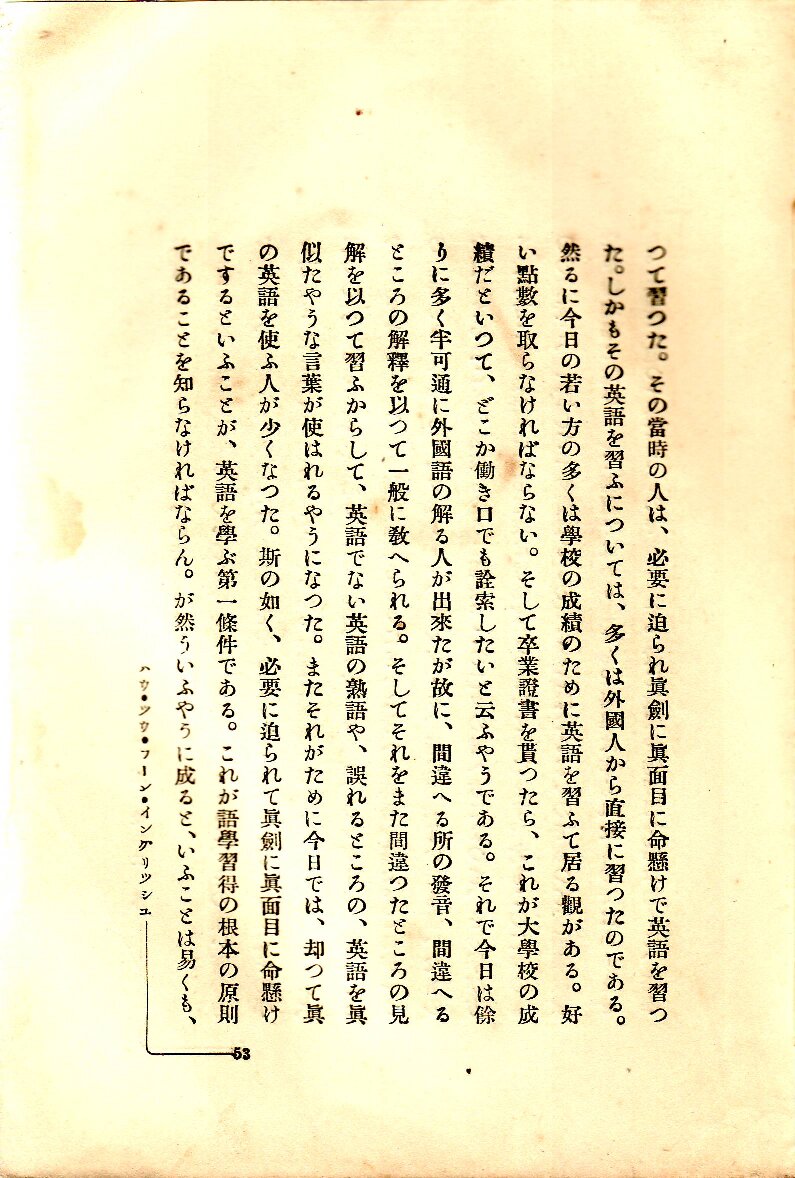 つて習つた。その當時の人は、必要に迫られ眞劍に眞面目に命懸けで英語を習つ
た。しかもその英語を習ふについては、多くは外國人から直接に習つたのである。
然るに今日の若い方の多くは學校の成績のために英語を習ふて居る觀がある。好
い點數を取らなければならない。そして卒業證書を貰つたら、これが大學校の成
績だといつて、どこか働き口でも詮索したいと云ふやうである。それで今日は餘
りに多く半可通に外國語の解る人が出來たが故に、間違へる所の發音、間違へる
ところの解釋を以つて一般に敎へられる。そしてそれをまた間違つたところの見
解を以つて習ふからして、英語でない英語の熟語や、誤れるところの、英語を眞
似たやうな言葉が使はれるやうになつた。またそれがために今日では、却つて眞
の英語を使ふ人が少くなつた。斯の如く、必要に迫られて眞劍に眞面目に命懸け
でするといふことが、英語を學ぶ第一條件である。これが語學習得の根本の原則
であることを知らなければならん。が然ういふやうに成ると、いふことは易くも、
ハウ・ツウ・ラーン・イングリツシユ
53